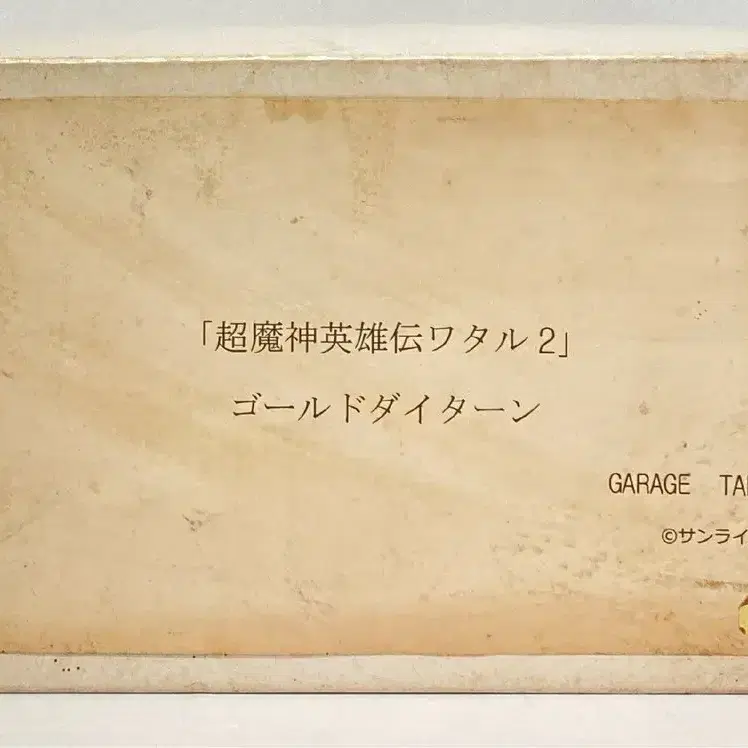 「超魔神英雄伝ワタル2」
ゴールドダイターン
GARAGE
©サンライ